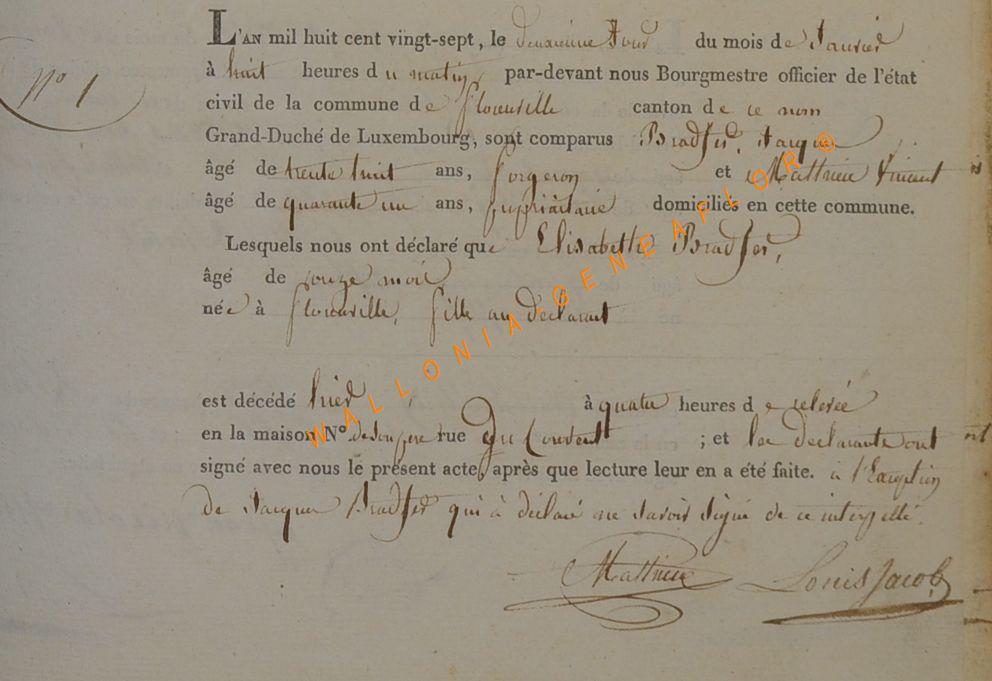 N° 1
L'AN mil huit cent vingt-sept, le deuxieme Jour du mois de Janvier
à huit heures du matin, par-devant nous Bourgmestre officier de l'état
civil de la commune de florenville canton de ce nom
Grand-Duché de Luxembourg, sont comparus Bradfer, Jacque
âgé de trente huit ans, forgeron et Mathieu Vincent
âgé de quarante un ans, propriétaire domiciliés en cette commune.
Lesquels nous ont déclaré que Elisabethe Bradfer,
âgé de onze mois
née à florenville, fille au declarant
est décédé hier à quatre heures de relevée
en la maison N° de son pere rue Du Couvent ; et les declarants ont
signé avec nous le présent acte, après que lecture leur en a été faite. à l'Exception
de Jacques Bradfer qui à déclaré ne savoir signé de ce interpellé.
Mathieu Louis Jacob
WALLONIA GENEAFLOR ®